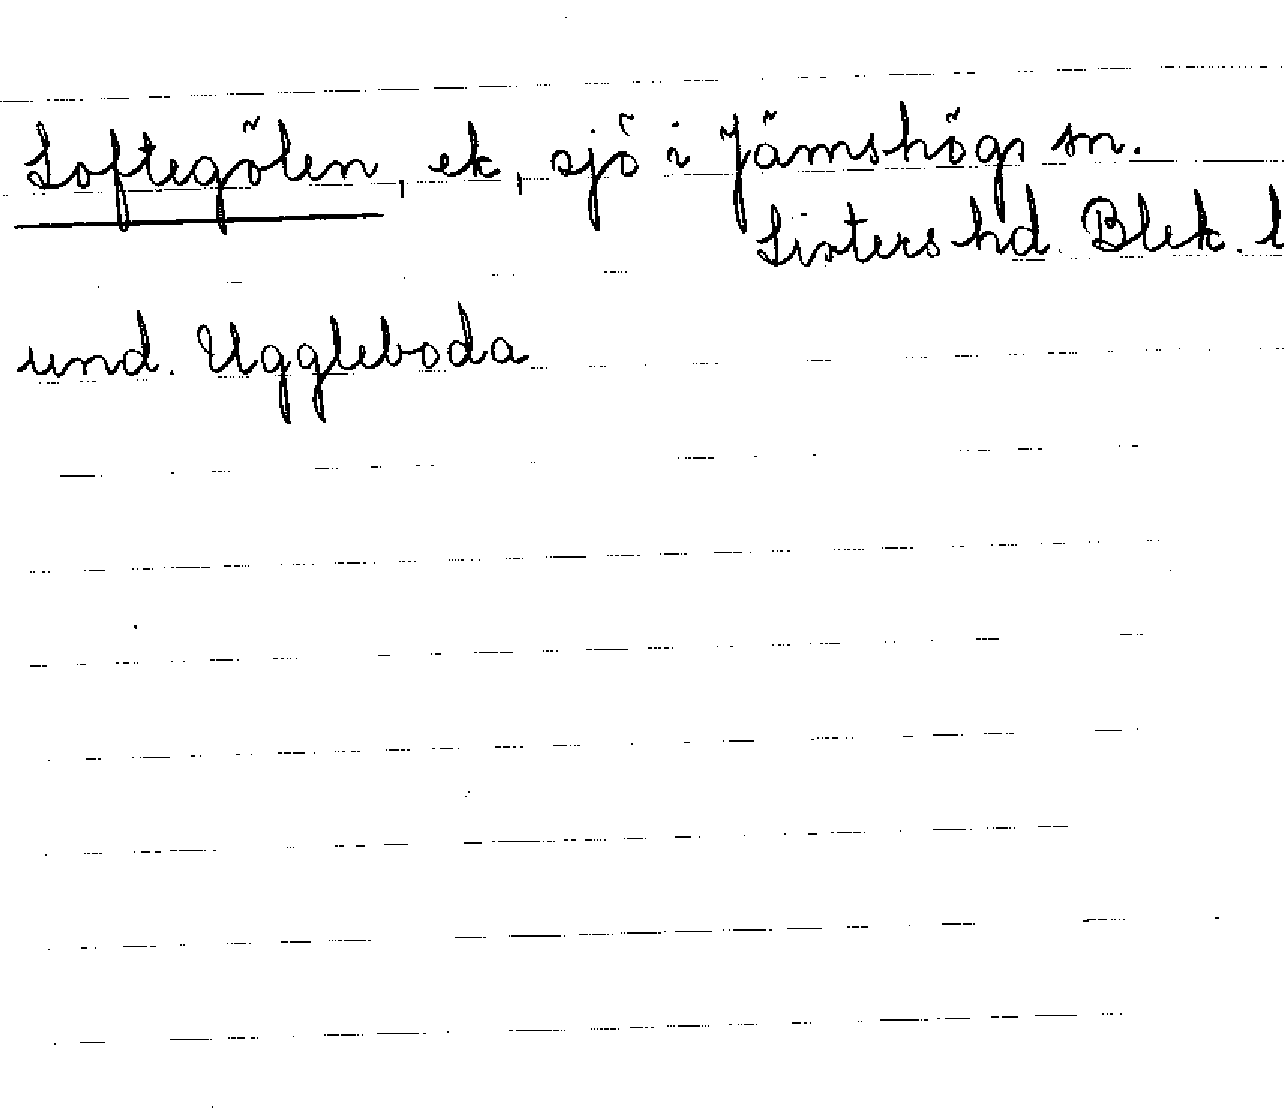 Loftegölen, ek, sjö i Jämshögs sn.
Listers hd. Blek. l
und. Uggleboda